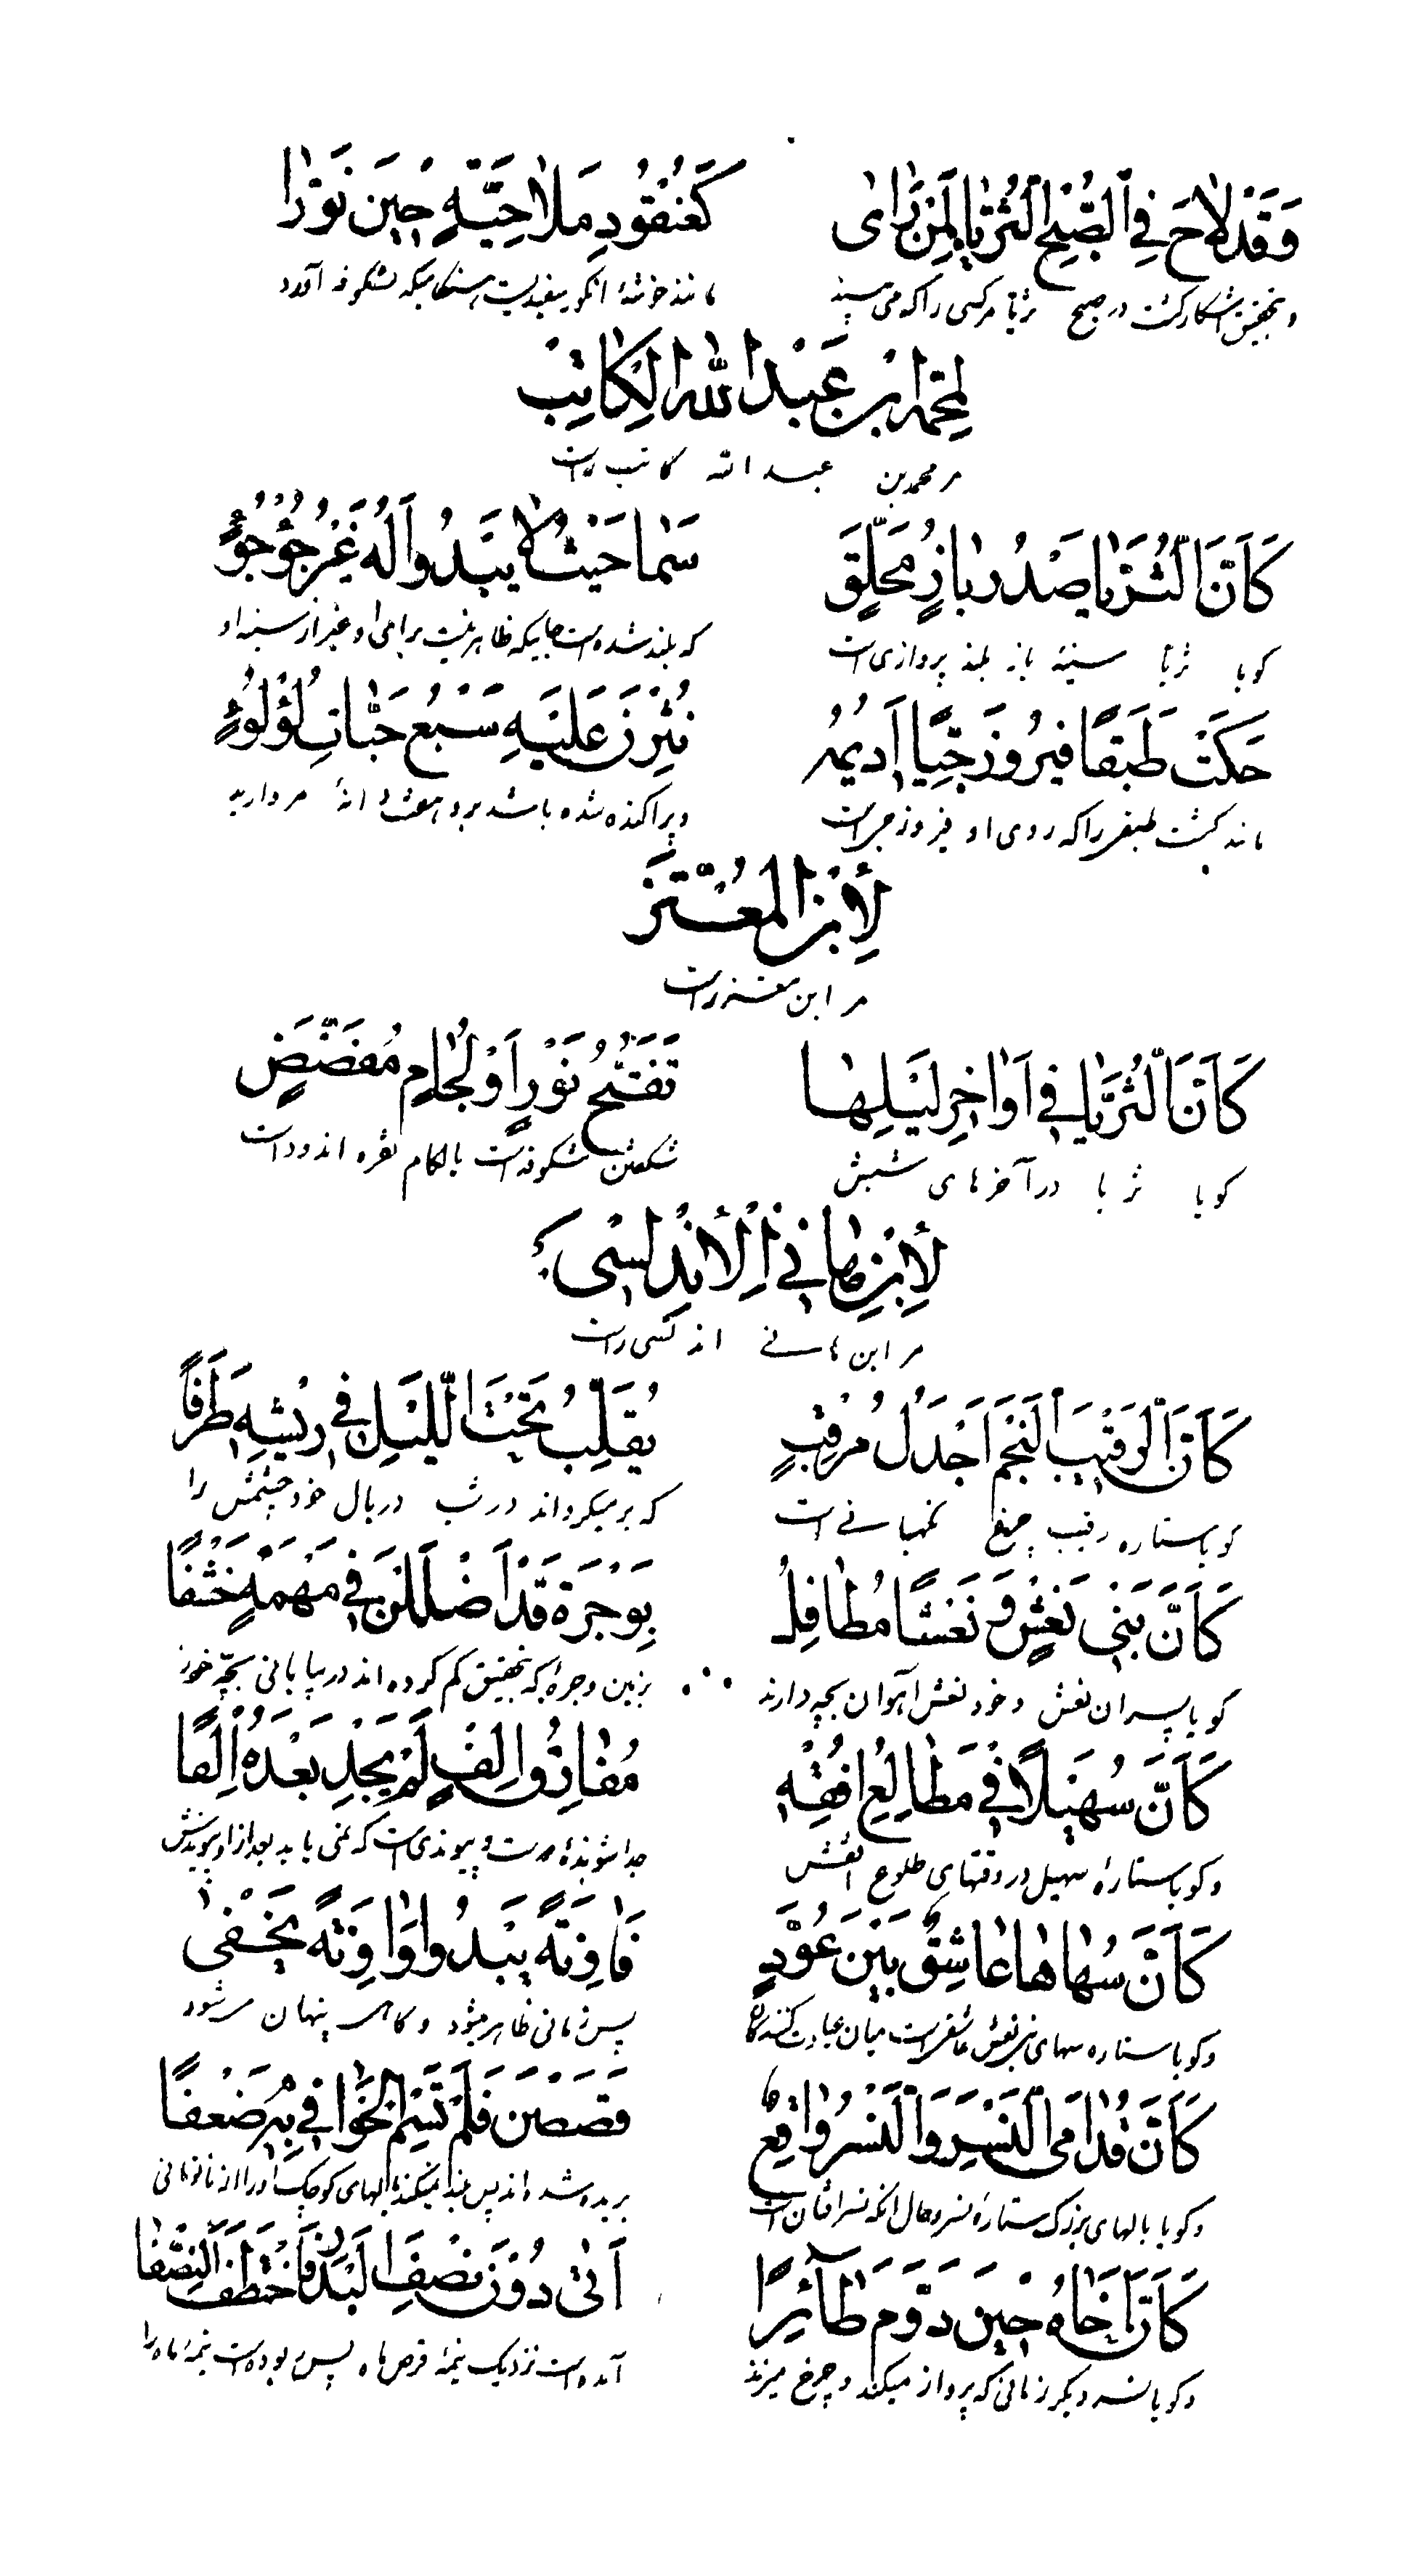 وَقَدْ لَاحَ فِي الصُّبْحِ الثُّرَيَّا لِمَنْ رَاٰى كَعُنْقُودِ مَلَاحِيَّةٍ حِينَ نَوَّرَا
و بتحقیق آشکار گشت در صبح ثریا مر کسی را که می بیند مانند خوشهٔ انگور سفید است هنگامیکه شکوفه آورد
لِمُحَمَّدِ ابْنِ عَبْدِ اللهِ الْكَاتِبْ
مر محمد بن عبد الله کاتب راست
كَاَنَّ الثُّرَيَّا صَدْرُ بَازٍ مُحَلِّقٍ سَمَا حَيْثُ لَا يَبْدُوا لَهُ غَيْرُ جُؤْجُؤٍ
گویا ثریا سینهٔ باز بلند پروازی است که بلند شده است جاییکه ظاهر نیست برای او غیر از سینه او
حَكَتْ طَبَقًا فَيْرُوزَجِيًّا اَدِيمُهُ نُثِرْنَ عَلَيْهِ سَبْعُ حَبَّاتِ لُؤْلُوءٍ
مانند گشت طبقی را که روی او فیروزجی است و پراکنده شده باشد برو هفت دانهٔ مروارید
لِأِبْنِ الْمُعْتَزَّ
مر ابن معتز راست
كَاَنَّ الثُّرَيَّا فِي اَوَاخِرِ لَيْلِهَا تَفَتُّحُ نَوْرٍ اَوْ لُجَامٍ مُفَضَّضٍ
گویا ثریا در آخرهای شبش شکفتن شکوفه است یا لگام نقره اندود است
لِأِبْنِ هَانِي اَلْأَنْدِلُسْي
مر ابن هانی اندلسی راست
كَاَنَّ الرَّقِيبَ النَّجْمَ اَجْدَلُ مَرْقَبٍ يُقَلِّبُ تَحْتَ اللَّيْلِ فِي رِيشِهِ طَرَفًا
گویا ستاره رقیب چرغ نگهبانی است که بر میگرداند در شب در بال خود چشمش را
كَاَنَّ بَنِي نَعْشٍ وَنَعْشًا مُطَافِلُ بِوَجْرَةَ قَدْ اَضْلَلْنَ فِي مَهْمَهٍ خَشْفًا
گویا پسران نعش و خود نعش آهوان بچه دارند بزمین وجره که بتحقیق گم کرده اند در بیابانی بچه خود
كَاَنَّ سُهَيْلًا فِي مَطَالِعِ اُفْقِهِ مُفَارِقُ اِلْفٍ لَمْ يَجِدْ بَعْدَهُ اِلْفًا
و گویا ستارهٔ سهیل در وقتهای طلوع افقش جدا شوندهٔ دوست و پیوندی است که نمی یابد بعد از او پیوندش
كَاَنَّ سُهَاهَا عَاشِقٌ بَيْنَ عُوَّدٍ فَاٰوِنَةً يَبْدُوا وَاٰوِنَةً يَخْفٰى
و گویا ستاره سهای بنی نعش عاشقی است میان عیادت کنندگان پس زمانی ظاهر میشود و گاهی پنهان میشود
كَاَنَّ قُدَامَى النَّسْرِ وَالنَّسْرُ وَاقِعٌ قَصَصْنَ فَلَمْ تَسْمُ الْخَوَافِي بِهِ ضَعْفًا
و گویا بالهای بزرگ ستارهٔ نسر و حال آنکه نسر افتان است بریده شده اند پس بلند نمیکند بالهای کوچک او را از ناتوانی
كَاَنَّ اَخَاهُ حِينَ دَوَّمَ طَآئِرًا اَتٰى دُوْنَ نِصْفِ الْبَدْرِ فَاخْتَطَفَ النِّصْفَا
و گویا نسر دیگر زمانی که پرواز میکند و چرخ میزند آمده است نزدیک نیمهٔ قرص ماه پس ربوده است نیمهٔ ماه را